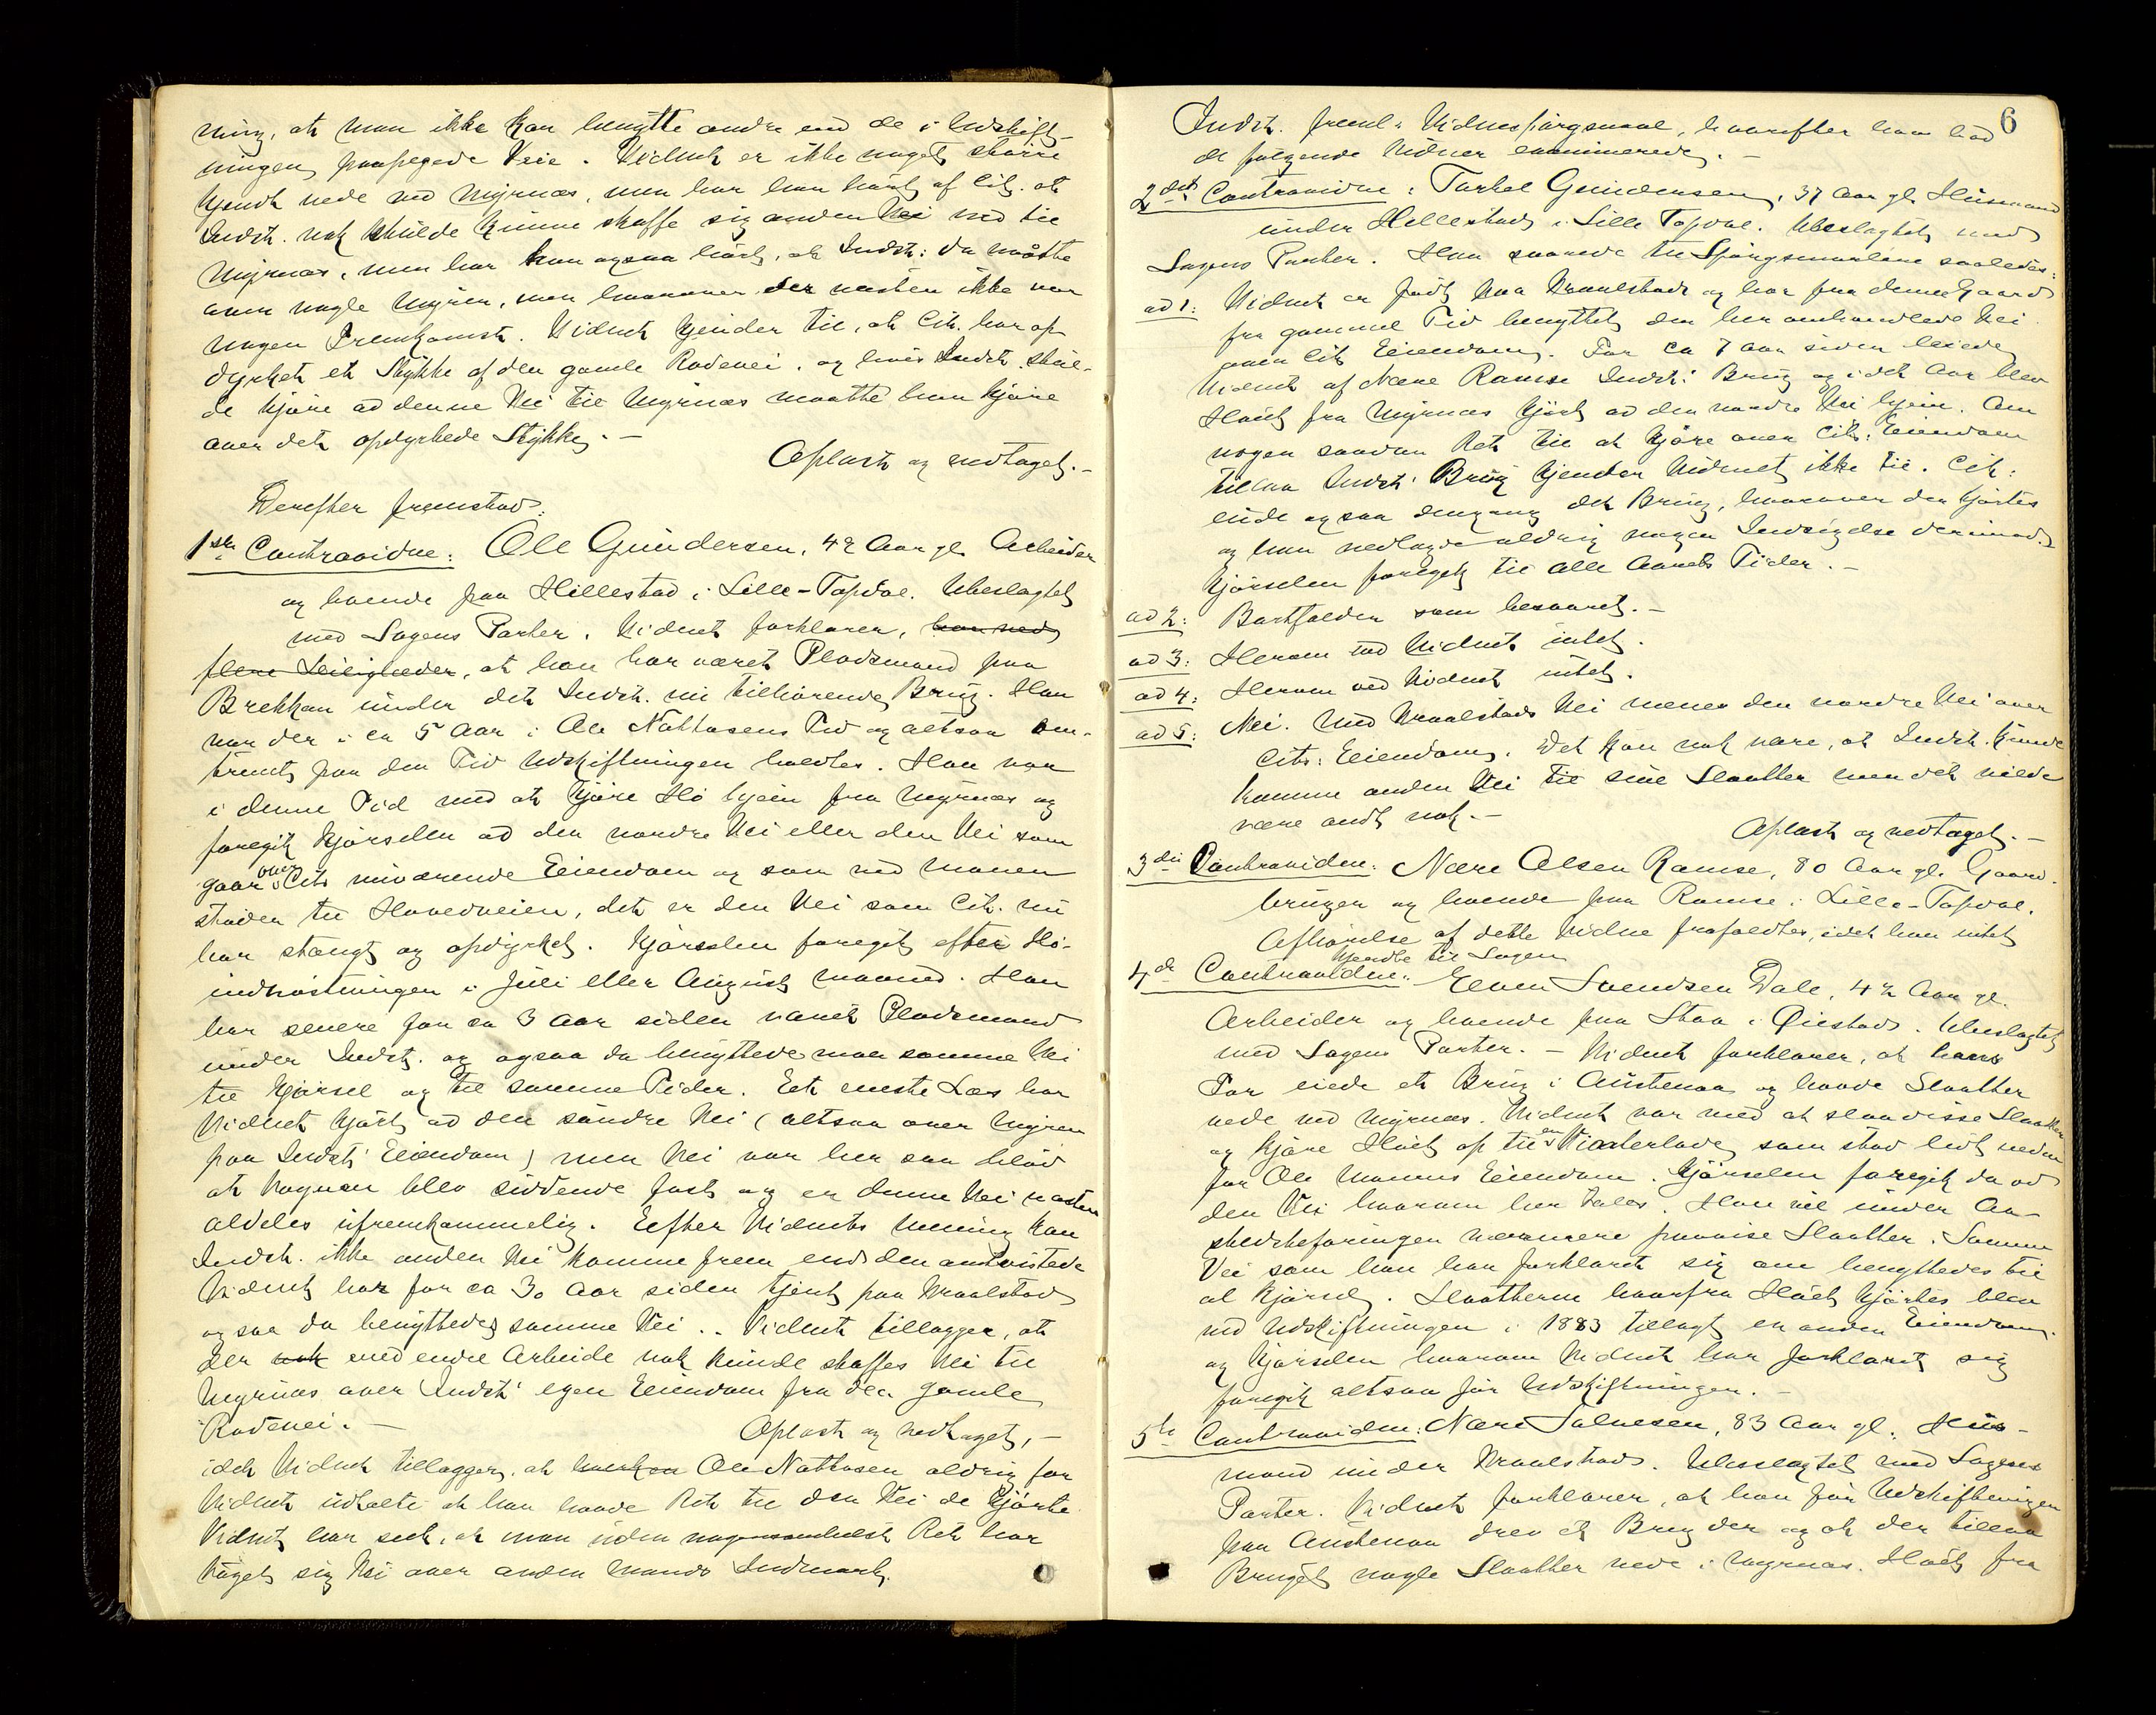 ning, at man ikke kan benytte andre end de i Udskift-
ningen paapegede Veie. Vidnet er ikke noget større
kjendt nede ved Myrnæs, men har han hørt af Cit. at
Indst. nok skulde kunne skaffe sig anden Vei ned til
Myrnæs, men har han ogsaa hørt, at Indst: da maatte
over nogle Myrer, men hvorover der næsten ikke var
nogen Fremkomst. Vidnet kjender til, at Cit. har op-
dyrket et Stykke af den gamle Rodevei, og hvis Indst. skul-
de kjøre ad denne Vei til Myrnæs maatte han kjøre
over det opdyrkede Stykke. —
Oplæst og vedtaget. —
Derefter fremstod:
1ste Contravidne: Ole Gundersen, 42 Aar gl. Arbeider
og boende paa Hillestad i Lille-Topdal. Ubeslægtet
med Sagens Parter. Vidnet forklarer, han ved
flere Leiligheder, at han har været Pladsmand paa
Brekkan under det Indst. nu tilhørende Brug. Han
var der i ca 5 Aar i Ole Nattosens Tid og altsaa om-
trent paa den Tid Udskiftningen holdtes. Han var
i denne Tid med at kjøre Hø hjem fra Myrnæs og
foregik Kjørselen ad den nordre Vei eller den Vei som
gaar over Cits nuværende Eiendom og som ved Monen
støder til Hovedveien, det er den Vei som Cit. nu
har stængt og opdyrket. Kjørselen foregik efter Hø-
indhøstningen i Juli eller August Maaned. Han
har senere for ca 3 Aar siden været Pladsmand
under Indst. og ogsaa da benyttede man samme Vei
til Kjørsel og til samme Tider. Et eneste Læs har
Vidnet kjørt ad den søndre Vei (altsaa over Myren
paa Indsts Eiendom) men Vei var her saa blød
at Vognen blev siddende fast og er denne Vei næsten
aldeles ufremkommelig. Efter Vidnets Mening kan
Indst. ikke anden Vei komme frem end den omtvistede
Vidnet har for ca 30 Aar siden tjent paa Vraalstad
ogsaa da benyttedes samme Vei. . Vidnet tillægger, at
der nok med endel Arbeide nok kunde skaffes Vei til
Myrnæs over Indsts egen Eiendom fra den gamle
Rodevei. —
Oplæst og vedtaget, —
idet Vidnet tillægger, at Ole Nattosen aldrig for
Vidnet udtalte at han havde Ret til den Vei de kjørte.
Vidnet har seet, at man uden nogensomhelst Ret har
taget sig Vei over anden Mands Indmark.
6
Indst. freml. Vidnespørgsmaal, hvorefter han lod
de følgende Vidner examinerede. —
2det Contravidne: Torkel Gundersen, 37 Aar gl. Husmand
under Hillestad i Lille Topdal. Ubeslægtet med
Sagens Parter. Han svarede til Spørgsmaalene saaledes:
ad 1: Vidnet er født paa Vraalstad og har paa denne Gaard
fra gammel Tid benyttet den her omhandlede Vei
over Cits Eiendom. For ca 7 Aar siden leiede
Vidnet af Nære Ramse Indsts Brug og i det Aar blev
Høiet fra Myrnæs kjørt ad den nordre Vei hjem. Om
nogen saadan Ret til at kjøre over Cits: Eiendom
tillaa Indsts Brug kjender Vidnet ikke til. Cit:
eiede ogsaa dengang det Brug, hvorover der kjørtes
og han nedlagde aldrig nogen Indsigelse derimod.
Kjørselen foregik til alle Aarets Tider. —
ad 2: Bortfalder som besvaret. —
ad 3: Herom ved Vidnet intet.
ad 4: Herom ved Vidnet intet.
ad 5: Nei. Med Vraalstads Vei menes den nordre Vei over
Cits: Eiendom. Det kan nok være, at Indst. kunde
komme anden Vei til sine Slaatter men det vilde
være ondt nok. —
Oplæst og vedtaget. —
3die Contravidne: Nære Olsen Ramse, 80 Aar gl. Gaard-
bruger og boende paa Ramse i Lille-Topdal.
Afhørelse af dette Vidne frafaldtes, idet han intet
kjendte til Sagen
4de Contravidne: Even Svendsen Dale, 42 Aar gl.
Arbeider og boende paa Stoa i Øiestad. Ubeslægtet
med Sagens Parter. — Vidnet forklarer, at hans
Far eiede et Brug i Austenaa og havde Slaatter
nede ved Myrnæs. Vidnet var med at slaa disse Slaatter
og kjøre Høiet op til en Vinterlade som stod lidt neden
for Ole Monens Eiendom. Kjørselen foregik da ad
den Vei hvorom her tales. Han vil under Aa-
stedsbefaringen nærmere paavise Slaatter. Samme
Vei som han har forklaret sig om benyttedes til
al Kjørsel. Slaatterne hvorfra Høiet kjørtes blev
ved Udskiftningen i 1883 tillagt en anden Eiendom
og Kjørselen hvorom Vidnet har forklaret sig
foregik altsaa før Udskiftningen. —
5te Contravidne: Nære Salvesen, 83 Aar gl. Hus-
mand under Vraalstad. Ubeslægtet med Sagens
Parter. Vidnet forklarer, at han før Udskiftningen
paa Austenaa drev et Brug der og at der tillaa
Bruget nogle Slaatter nede i Myrnæs. Høiet fra